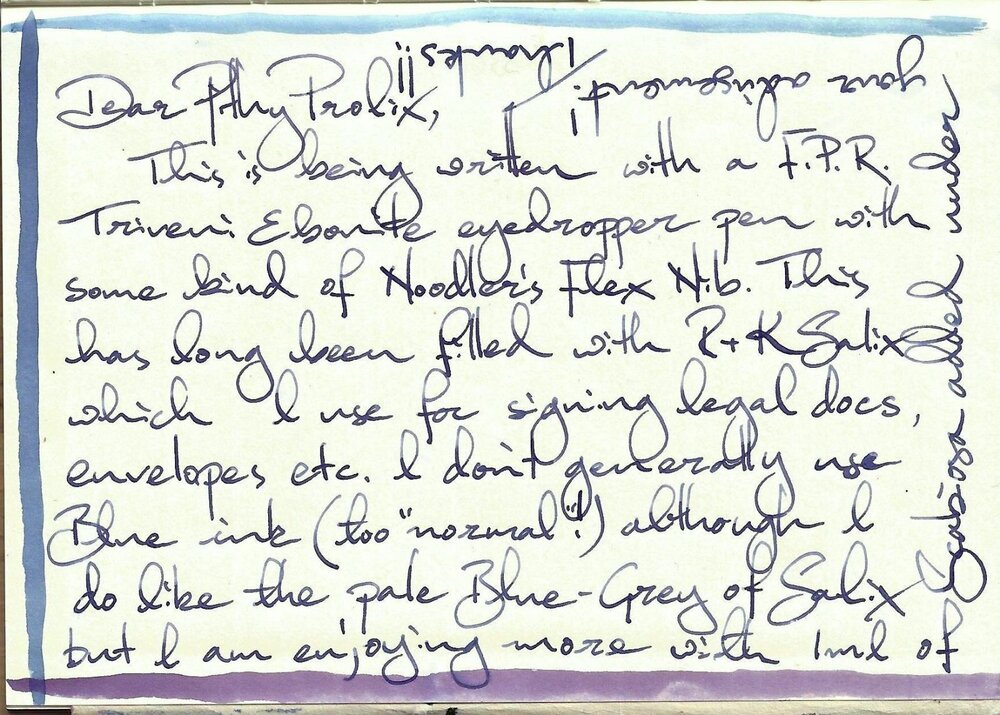 Dear Pthy Prolix,
This is being written with a F.P.R.
Triveni Ebonite eyedropper pen with
some kind of Noodler's Flex Nib. This
has long been filled with R+K Salix
which I use for signing legal docs,
envelopes etc. I don't generally use
Blue ink (too "normal"!) although I
do like the pale Blue-Grey of Salix
but I am enjoying more with 1ml of
Scabiosa added under
your advisement!
Thanks!!